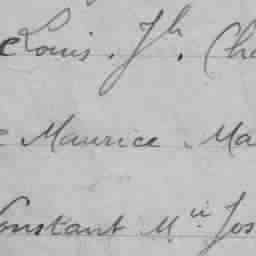 Louis. Jh. Cha
Maurice Ma
Constant Mii Jos